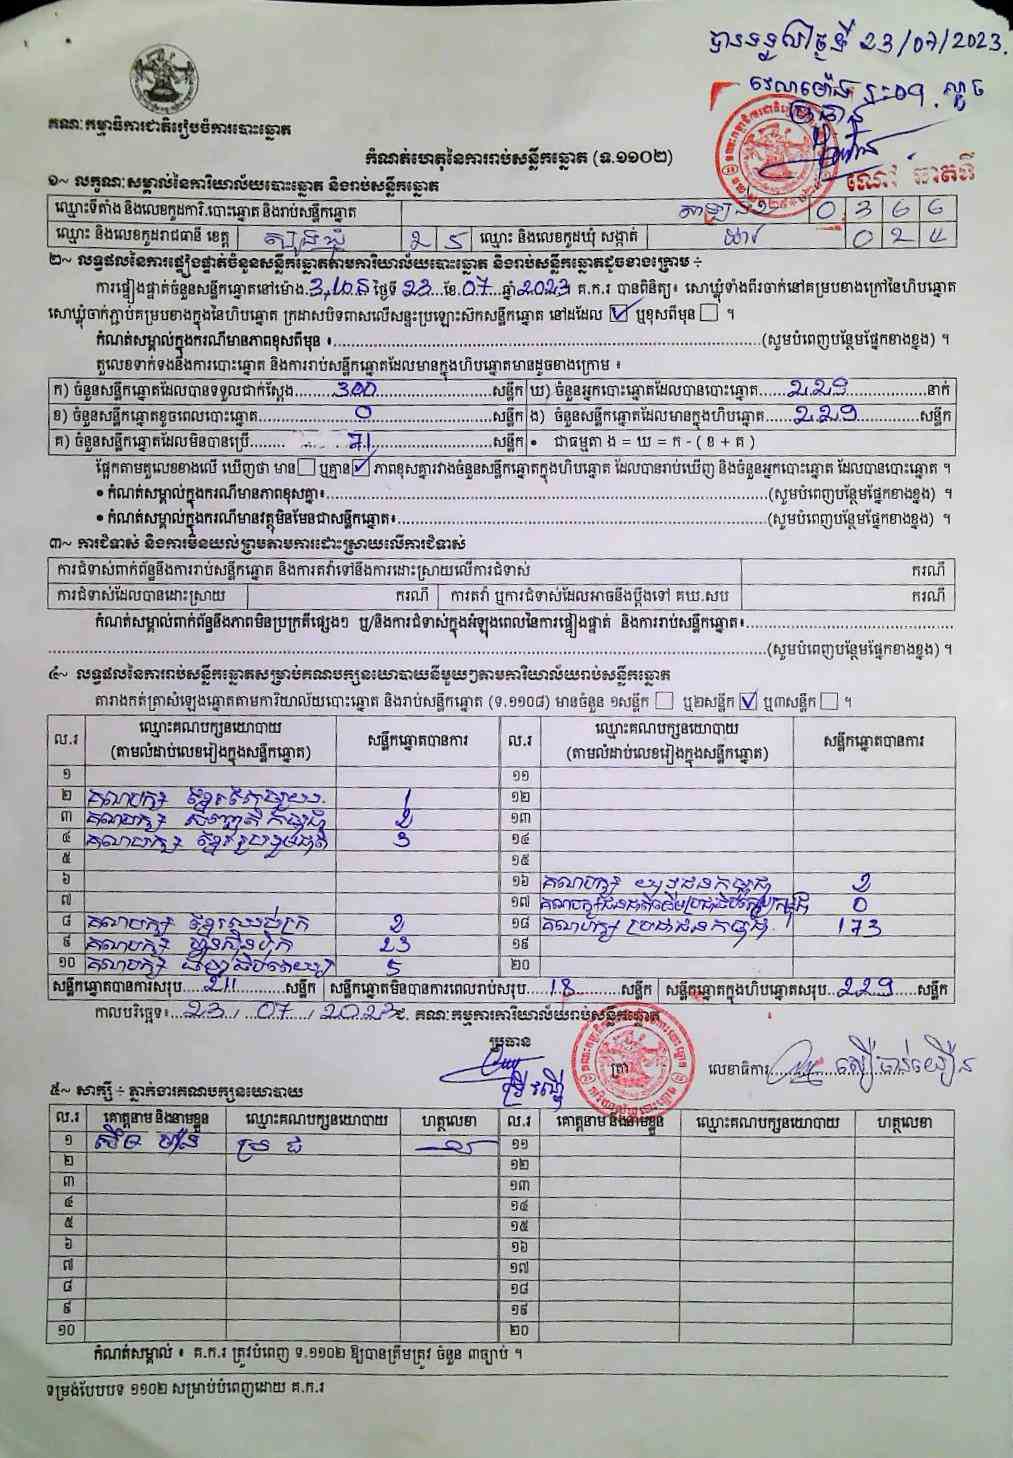 បានទទួលថ្ងៃទី 23/07/2023.
វេលាម៉ោង
ប្រធាន
គណៈកម្មាធិការជាតិរៀបចំការបោះឆ្នោត
កំណត់ហេតុនៃការរាប់សន្លឹកឆ្នោត (ទ.១១០២)
១~ លក្ខណៈសម្គាល់នៃការិយាល័យបោះឆ្នោត និងរាប់សន្លឹកឆ្នោត
ឈ្មោះទីតាំង និងលេខកូដការិ.បោះឆ្នោត និងរាប់សន្លឹកឆ្នោត 0 3 6 6
ឈ្មោះ និងលេខកូដរាជធានី ខេត្ត 2 5 ឈ្មោះ និងលេខកូដឃុំ សង្កាត់ 0 2 5
២~ លទ្ធផលនៃការផ្ទៀងផ្ទាត់ចំនួនសន្លឹកឆ្នោតតាមការិយាល័យបោះឆ្នោត និងរាប់សន្លឹកឆ្នោតដូចខាងក្រោម ÷
ការផ្ទៀងផ្ទាត់ចំនួនសន្លឹកឆ្នោតនៅម៉ោង ថ្ងៃទី 23 ខែ 07 ឆ្នាំ 2023 គ.ក.រ បានពិនិត្យ៖ សោឃ្លុំទាំងពីរចាក់នៅគម្របខាងក្រៅនៃហិបឆ្នោត
សោឃ្លុំចាក់ភ្ជាប់គម្របខាងក្នុងនៃហិបឆ្នោត ក្រដាសបិទពាសលើសន្ទះប្រឡោះស៊កសន្លឹកឆ្នោត នៅដដែល ☑ ឬខុសពីមុន ☐ ។
កំណត់សម្គាល់ក្នុងករណីមានភាពខុសពីមុន ៖ (សូមបំពេញបន្ថែមផ្នែកខាងខ្នង) ។
តួលេខទាក់ទងនឹងការបោះឆ្នោត និងការរាប់សន្លឹកឆ្នោតដែលមានក្នុងហិបឆ្នោតមានដូចខាងក្រោម ៖
ក) ចំនួនសន្លឹកឆ្នោតដែលបានទទួលជាក់ស្តែង 300 សន្លឹក ឃ) ចំនួនអ្នកបោះឆ្នោតដែលបានបោះឆ្នោត 229 នាក់
ខ) ចំនួនសន្លឹកឆ្នោតខូចពេលបោះឆ្នោត 0 សន្លឹក ង) ចំនួនសន្លឹកឆ្នោតដែលមានក្នុងហិបឆ្នោត 229 សន្លឹក
គ) ចំនួនសន្លឹកឆ្នោតដែលមិនបានប្រើ 71 សន្លឹក • ជាធម្មតា ង = ឃ = ក - ( ខ + គ )
ផ្អែកតាមតួលេខខាងលើ ឃើញថា មាន ☐ ឬគ្មាន ☑ ភាពខុសគ្នារវាងចំនួនសន្លឹកឆ្នោតក្នុងហិបឆ្នោត ដែលបានរាប់ឃើញ និងចំនួនអ្នកបោះឆ្នោត ដែលបានបោះឆ្នោត ។
• កំណត់សម្គាល់ក្នុងករណីមានភាពខុសគ្នា៖ (សូមបំពេញបន្ថែមផ្នែកខាងខ្នង) ។
• កំណត់សម្គាល់ក្នុងករណីមានវត្ថុមិនមែនជាសន្លឹកឆ្នោត៖ (សូមបំពេញបន្ថែមផ្នែកខាងខ្នង) ។
៣~ ការជំទាស់ និងការមិនយល់ព្រមតាមការដោះស្រាយលើការជំទាស់
ការជំទាស់ពាក់ព័ន្ធនឹងការរាប់សន្លឹកឆ្នោត និងការតវ៉ាទៅនឹងការដោះស្រាយលើការជំទាស់ ករណី
ការជំទាស់ដែលបានដោះស្រាយ ករណី ការតវ៉ា ឬការជំទាស់ដែលអាចនឹងប្តឹងទៅ គឃ.សប ករណី
កំណត់សម្គាល់ពាក់ព័ន្ធនឹងភាពមិនប្រក្រតីផ្សេងៗ ឬ/និងការជំទាស់ក្នុងអំឡុងពេលនៃការផ្ទៀងផ្ទាត់ និងការរាប់សន្លឹកឆ្នោត៖
(សូមបំពេញបន្ថែមផ្នែកខាងខ្នង) ។
៤~ លទ្ធផលនៃការរាប់សន្លឹកឆ្នោតសម្រាប់គណបក្សនយោបាយនីមួយៗតាមការិយាល័យរាប់សន្លឹកឆ្នោត
តារាងកត់ត្រាសំឡេងឆ្នោតតាមការិយាល័យបោះឆ្នោត និងរាប់សន្លឹកឆ្នោត (ទ.១១០៨) មានចំនួន ១សន្លឹក ☐ ឬ២សន្លឹក ☑ ឬ៣សន្លឹក ☐ ។
ល.រ ឈ្មោះគណបក្សនយោបាយ សន្លឹកឆ្នោតបានការ ល.រ ឈ្មោះគណបក្សនយោបាយ សន្លឹកឆ្នោតបានការ
(តាមលំដាប់លេខរៀងក្នុងសន្លឹកឆ្នោត) (តាមលំដាប់លេខរៀងក្នុងសន្លឹកឆ្នោត)
១ ១១
២ គណបក្ស ខ្មែរ 1 ១២
៣ គណបក្ស សញ្ជាតិកម្ពុជា 2 ១៣
៤ គណបក្ស ខ្មែររួបរួមជាតិ 3 ១៤
៥ ១៥
៦ ១៦ គណបក្ស យុវជនកម្ពុជា 2
៧ ១៧ គណបក្ស 0
៨ គណបក្ស ខ្មែរឈប់ក្រ 2 ១៨ គណបក្ស ប្រជាជនកម្ពុជា 173
៩ គណបក្ស ហ៊្វុនស៊ិនប៉ិច 23 ១៩
១០ គណបក្ស 5 ២០
សន្លឹកឆ្នោតបានការសរុប 211 សន្លឹក សន្លឹកឆ្នោតមិនបានការពេលរាប់សរុប 18 សន្លឹក សន្លឹកឆ្នោតក្នុងហិបឆ្នោតសរុប 229 សន្លឹក
កាលបរិច្ឆេទ៖ 23 / 07 / 2023 គណៈកម្មការការិយាល័យរាប់សន្លឹកឆ្នោត
ប្រធាន
ត្រា លេខាធិការ
៥~ សាក្សី ÷ ភ្នាក់ងារគណបក្សនយោបាយ
ល.រ គោត្តនាម និងនាមខ្លួន ឈ្មោះគណបក្សនយោបាយ ហត្ថលេខា ល.រ គោត្តនាម និងនាមខ្លួន ឈ្មោះគណបក្សនយោបាយ ហត្ថលេខា
១ ប្រ ជ ១១
២ ១២
៣ ១៣
៤ ១៤
៥ ១៥
៦ ១៦
៧ ១៧
៨ ១៨
៩ ១៩
១០ ២០
កំណត់សម្គាល់ ៖ គ.ក.រ ត្រូវបំពេញ ទ.១១០២ ឱ្យបានត្រឹមត្រូវ ចំនួន ៣ច្បាប់ ។
ទម្រង់បែបបទ ១១០២ សម្រាប់បំពេញដោយ គ.ក.រ